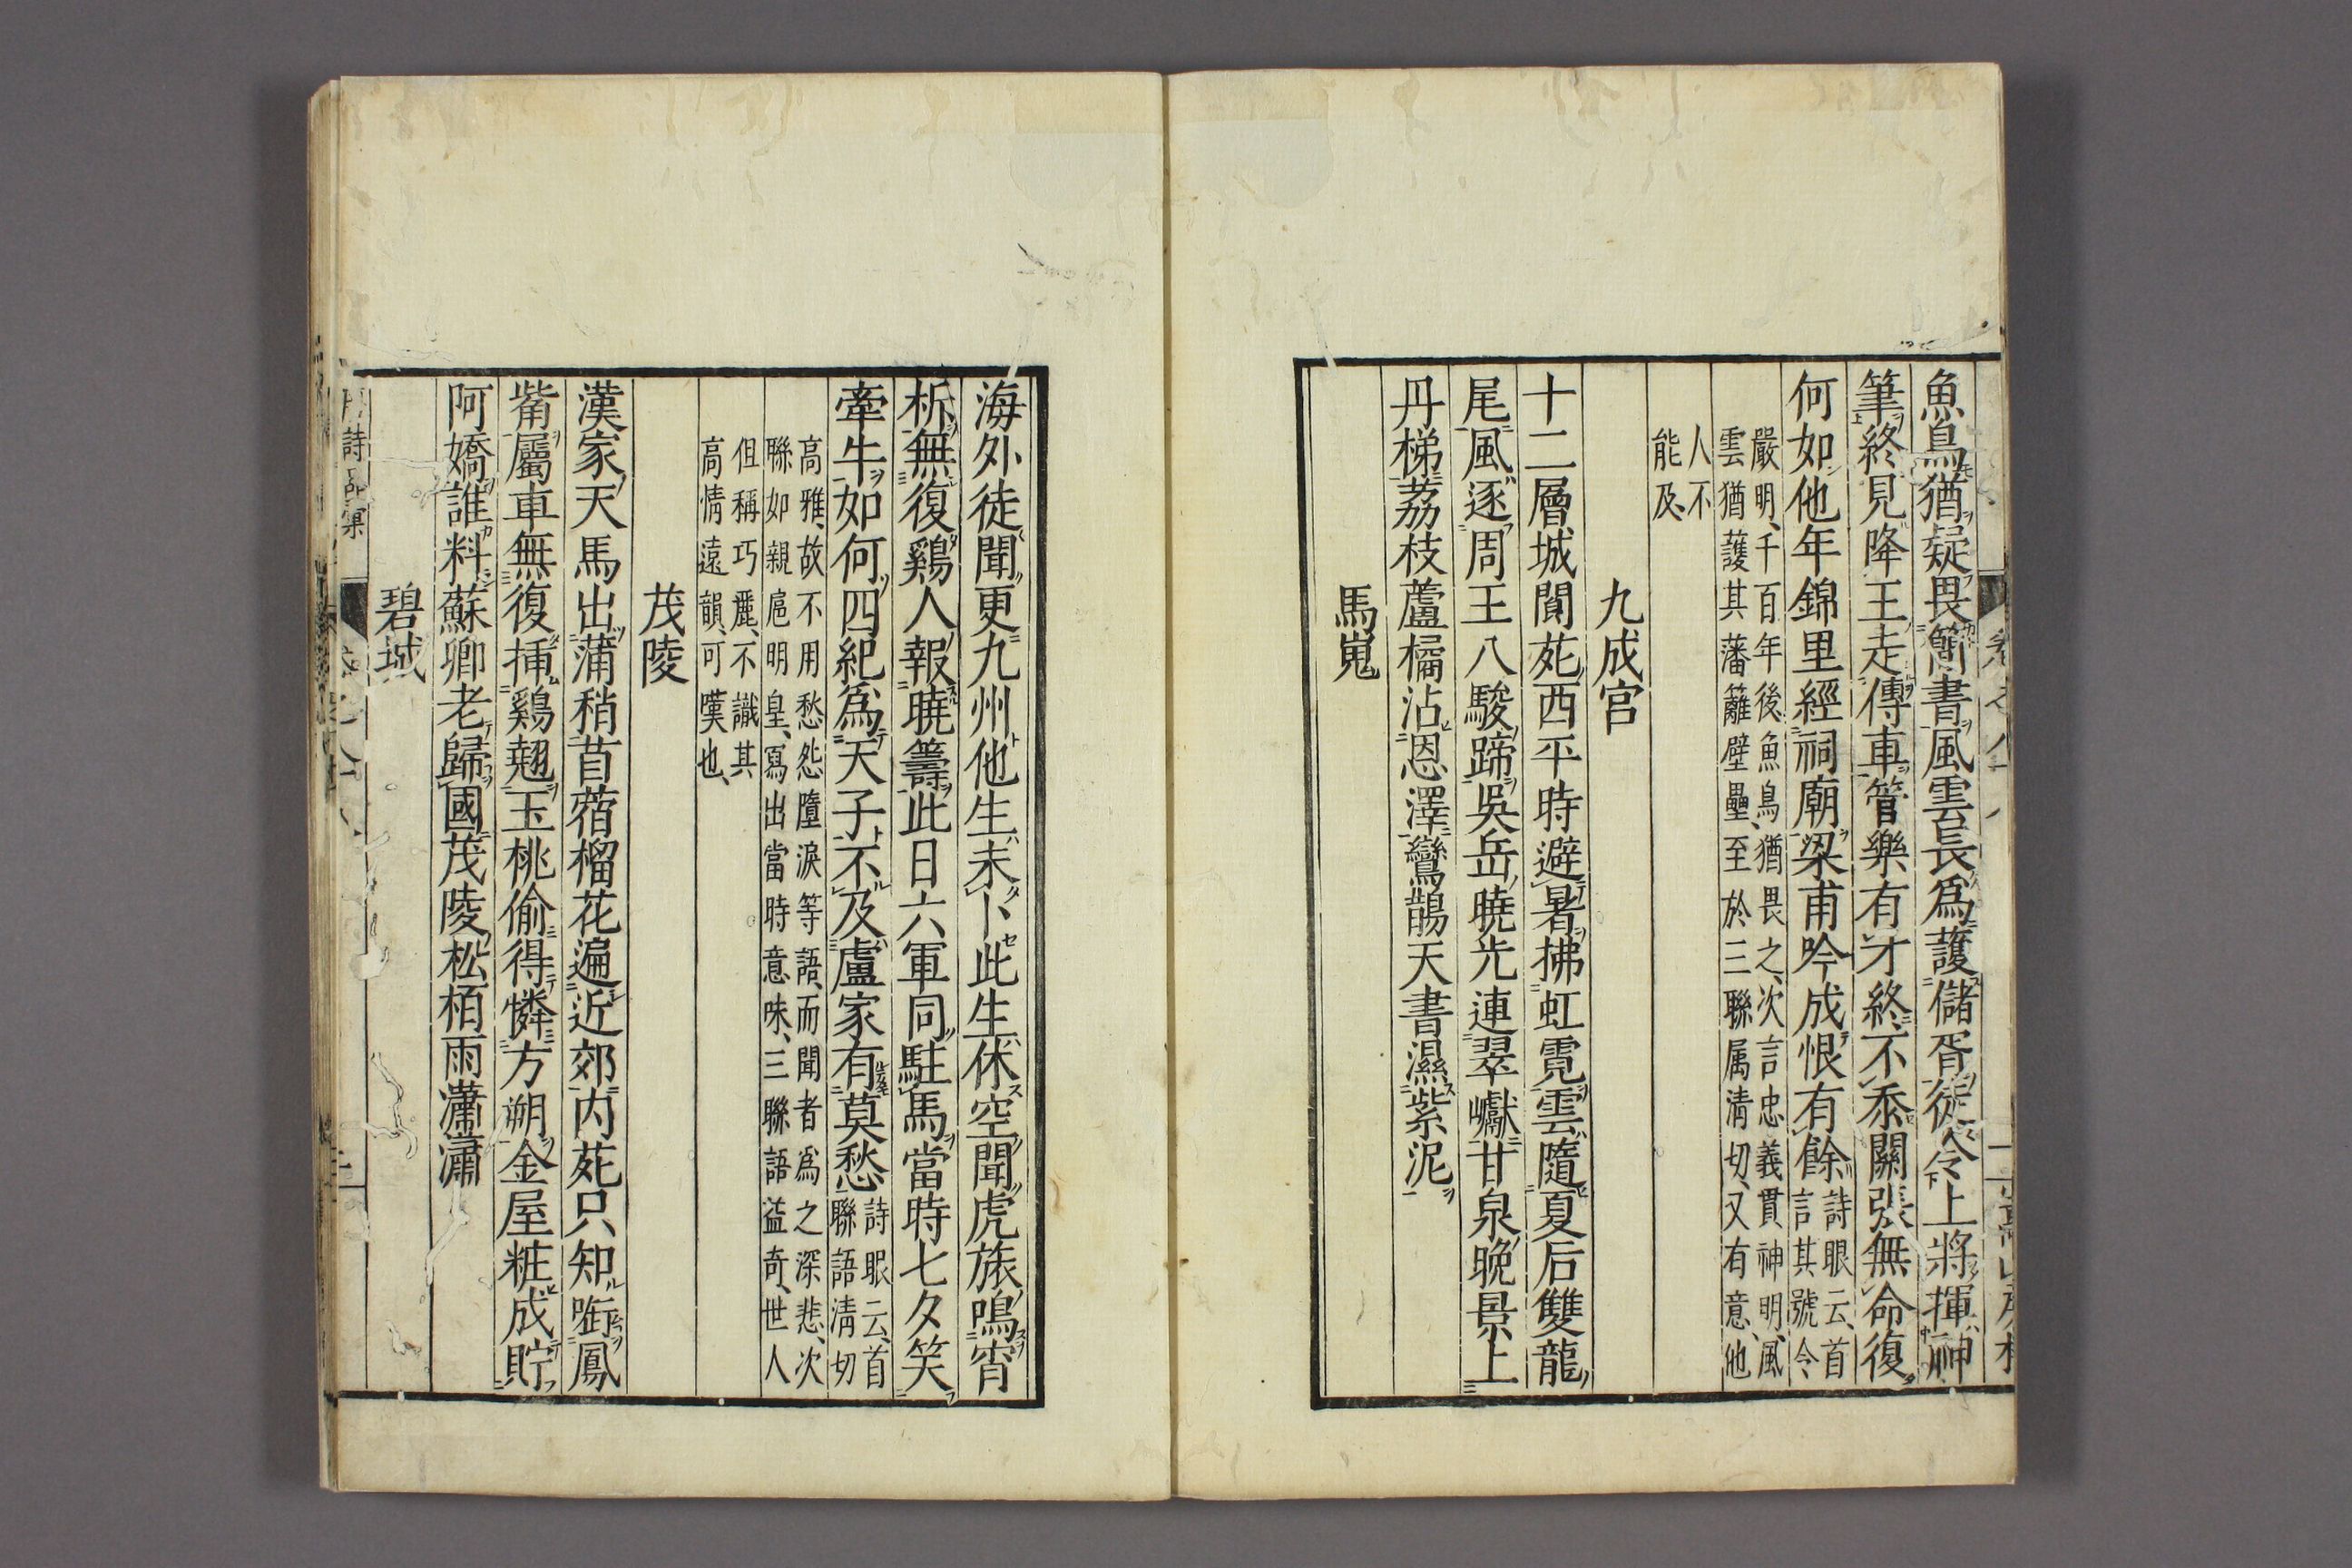 魚鳥猶疑畏簡書風雲長爲護儲胥徒令上將揮神
筆終見降王走傳車管樂有才終不忝關張無命復
何如他年錦里經祠廟梁甫吟成恨有餘詩眼云、首言其號令
嚴明、千百年後、魚鳥、猶畏之、次言忠義貫神明、風
雲猶護其藩籬壁壘、至於三聯属清切、又有意、他
人不
能及、
九成宮
十二層城閬苑西平時避暑拂虹霓雲隨夏后雙龍
尾風逐周王八駿蹄吳岳曉光連翠巘甘泉晚景上
丹梯荔枝蘆橘沾恩澤鸞鵲天書濕紫泥
馬嵬
海外徒聞更九州他生未卜此生休空聞虎旅鳴宵
柝無復鷄人報曉籌此日六軍同駐馬當時七夕笑
牽牛如何四紀爲天子不及盧家有莫愁詩眼云、首聯語清切
高雅、故不用愁怨墮淚等語、而聞者爲之深悲、次
聯如親扈明皇、寫出當時意味、三聯語益奇、世人
但稱巧麗、不識其
高情遠韻、可嘆也、
茂陵
漢家天馬出蒲稍苜蓿榴花遍近郊内苑只知銜鳳
觜屬車無復插鷄翹玉桃偷得憐方朔金屋粧成貯
阿嬌誰料蘇卿老歸國茂陵松栢雨瀟瀟
碧城